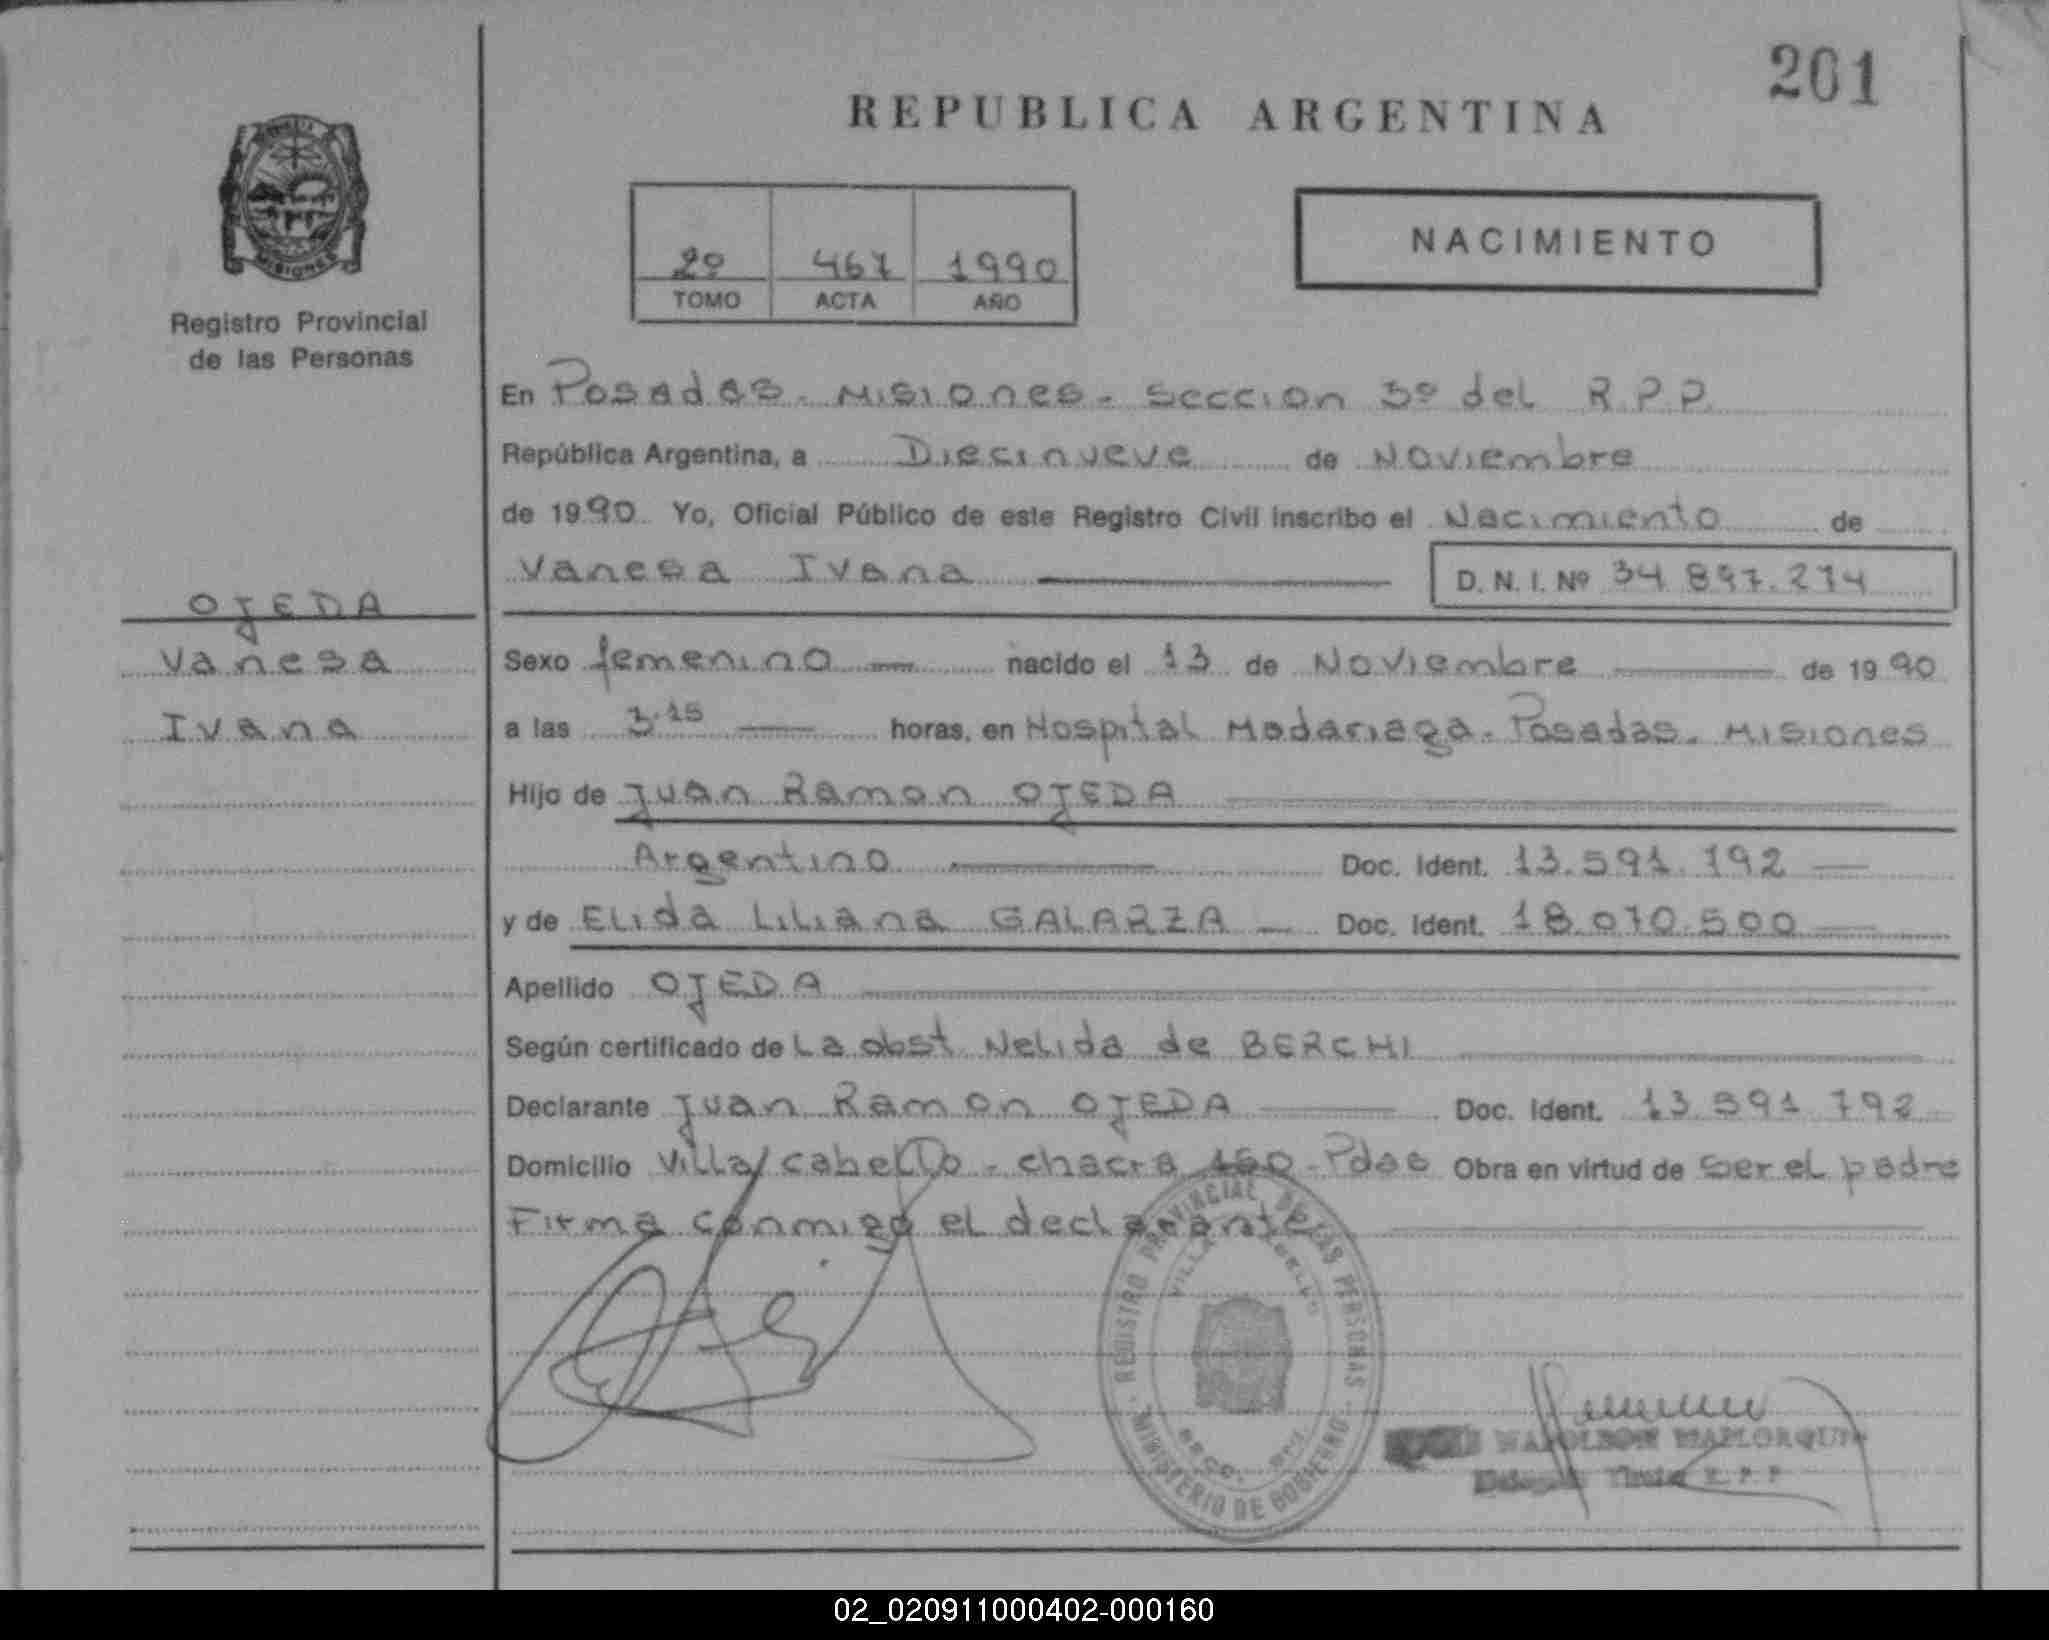 201
REPUBLICA ARGENTINA
MISIONES
Registro Provincial
de las Personas
2º 467 1990
TOMO ACTA AÑO
NACIMIENTO
En Posadas - Misiones - Seccion 3º del R.P.P.
República Argentina, a Diecinueve de Noviembre
de 1990 Yo, Oficial Público de este Registro Civil inscribo el Nacimiento de
Vanesa Ivana D. N. I. Nº 34.897.274
OJEDA
Vanesa
Ivana
Sexo femenino nacido el 13 de Noviembre de 1990
a las 3.15 horas, en Hospital Madariaga - Posadas. Misiones
Hijo de Juan Ramon OJEDA
Argentino Doc. Ident. 13.591.792
y de Elida Liliana GALARZA Doc. Ident. 18.070.500
Apellido OJEDA
Según certificado de La obst. Nelida de BERCHI
Declarante Juan Ramon OJEDA Doc. Ident. 13.591.792
Domicilio Villa Cabello - chacra 150 - Pdas Obra en virtud de ser el padre
Firma conmigo el declarante
REGISTRO PROVINCIAL DE LAS PERSONAS
VILLA CABELLO
MINISTERIO DE GOBIERNO
NAPOLEON
Titular R.P.P
02_020911000402-000160